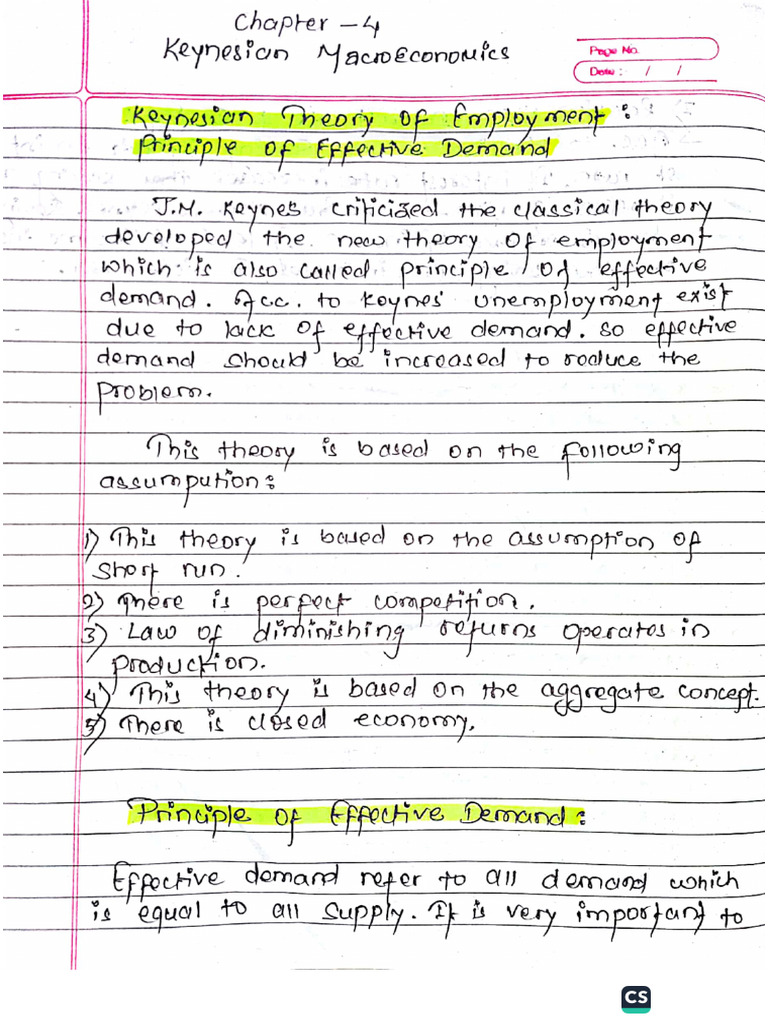 Chapter - 4
Keynesian Macroeconomics
Page No.
Date : / /
Keynesian Theory of Employment :
Principle of Effective Demand
J.M. Keynes criticized the classical theory
developed the new theory of employment
which is also called principle of effective
demand. Acc. to Keynes' unemployment exist
due to lack of effective demand. so effective
demand should be increased to reduce the
problem.
This theory is based on the following
assumpution :
1) This theory is based on the assumption of
short run.
2) There is perfect competition.
3) Law of diminishing returns operates in
production.
4) This theory is based on the aggregate concept.
5) There is closed economy.
Principle of Effective Demand :
Effective demand refer to all demand which
is equal to all supply. It is very important to
CS